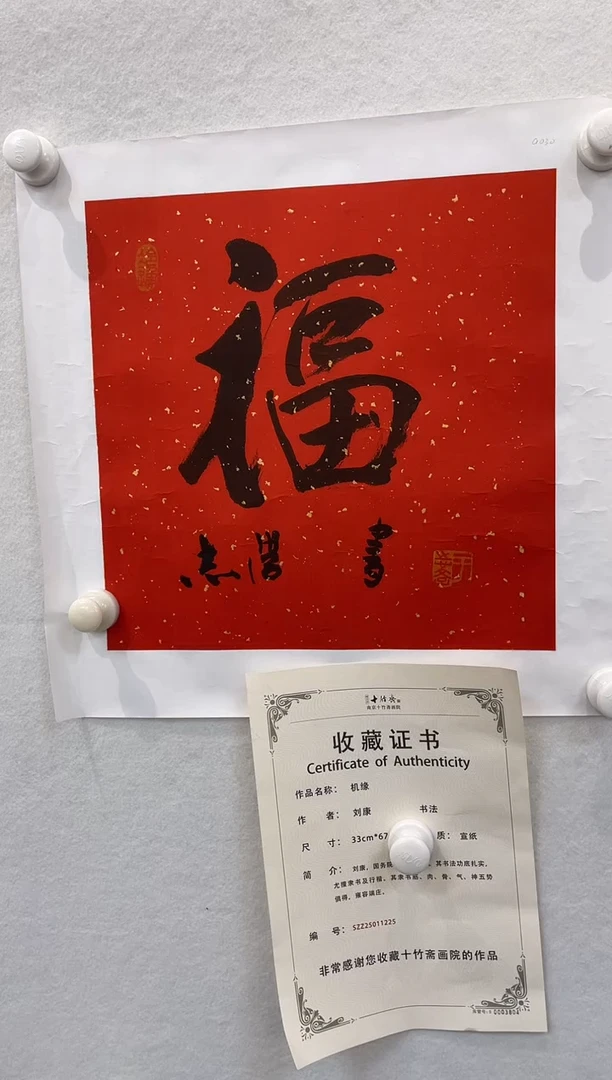 福
书
十竹斋
南京十竹斋画院
收藏证书
Certificate of Authenticity
作品名称： 机缘
作 者： 刘康 书法
尺 寸： 33cm*67 质： 宣纸
简 介： 刘康，国务院 其书法功底扎实，
尤擅隶书及行楷，其隶书筋、肉、骨、气、神五势
俱得，雍容端庄。
编 号： SZZ25011225
非常感谢您收藏十竹斋画院的作品
0003804